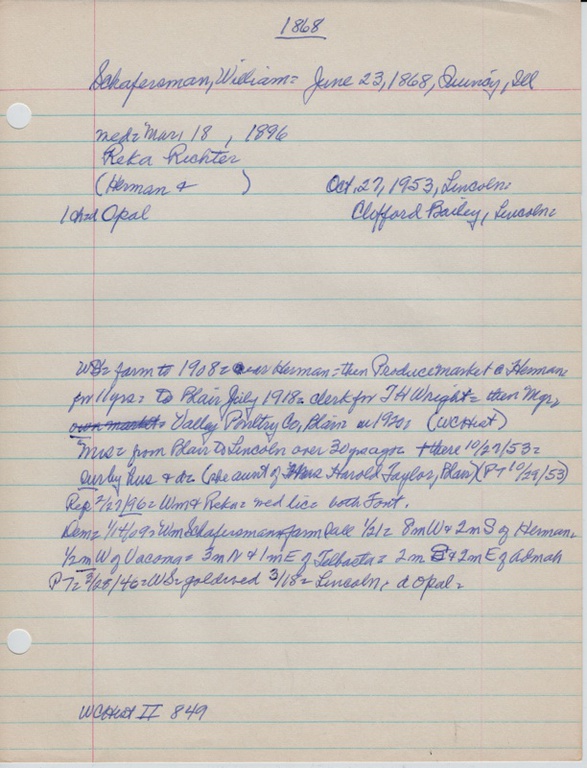 1868
Schafersman, William = June 23, 1868, Quincy, Ill
med = Mar. 18, 1896
Reka Richter
(Herman & ) Oct. 27, 1953, Lincoln =
1 chd Opal Clofford Bailey, Lincoln =
WS = farm to 1908 = near Herman = then Produce market @ Herman
for 11 yrs = to Blair July 1918 = clerk for J H Wright = then Mgr,
own market = Valley Poultry Co, Blair in 1920s (WCHist)
Mrs = from Blair to Lincoln over 30 yrs ago = there 10/27/53 =
surby hus & da (she aunt of Mrs Harold Taylor, Blair) (PT 10/29/53)
Rep 2/27/96 = Wm & Reka = med lic = both Font.
Dem = 1/14/09 = Wm Schafersman farm sale 1/21 = 8 m W & 2 m S of Herman
1/2 m W of Vacoma = 3 m N & 1 m E of Telbasta = 2 m S & 2 m E of Admah
PT = 3/28/46 = WS = gold wed 3/18 = Lincoln, d Opal =
WCHist II 849